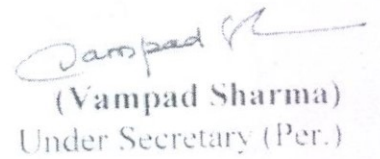 Vampad Sh
(Vampad Sharma)
Under Secretary (Per.)